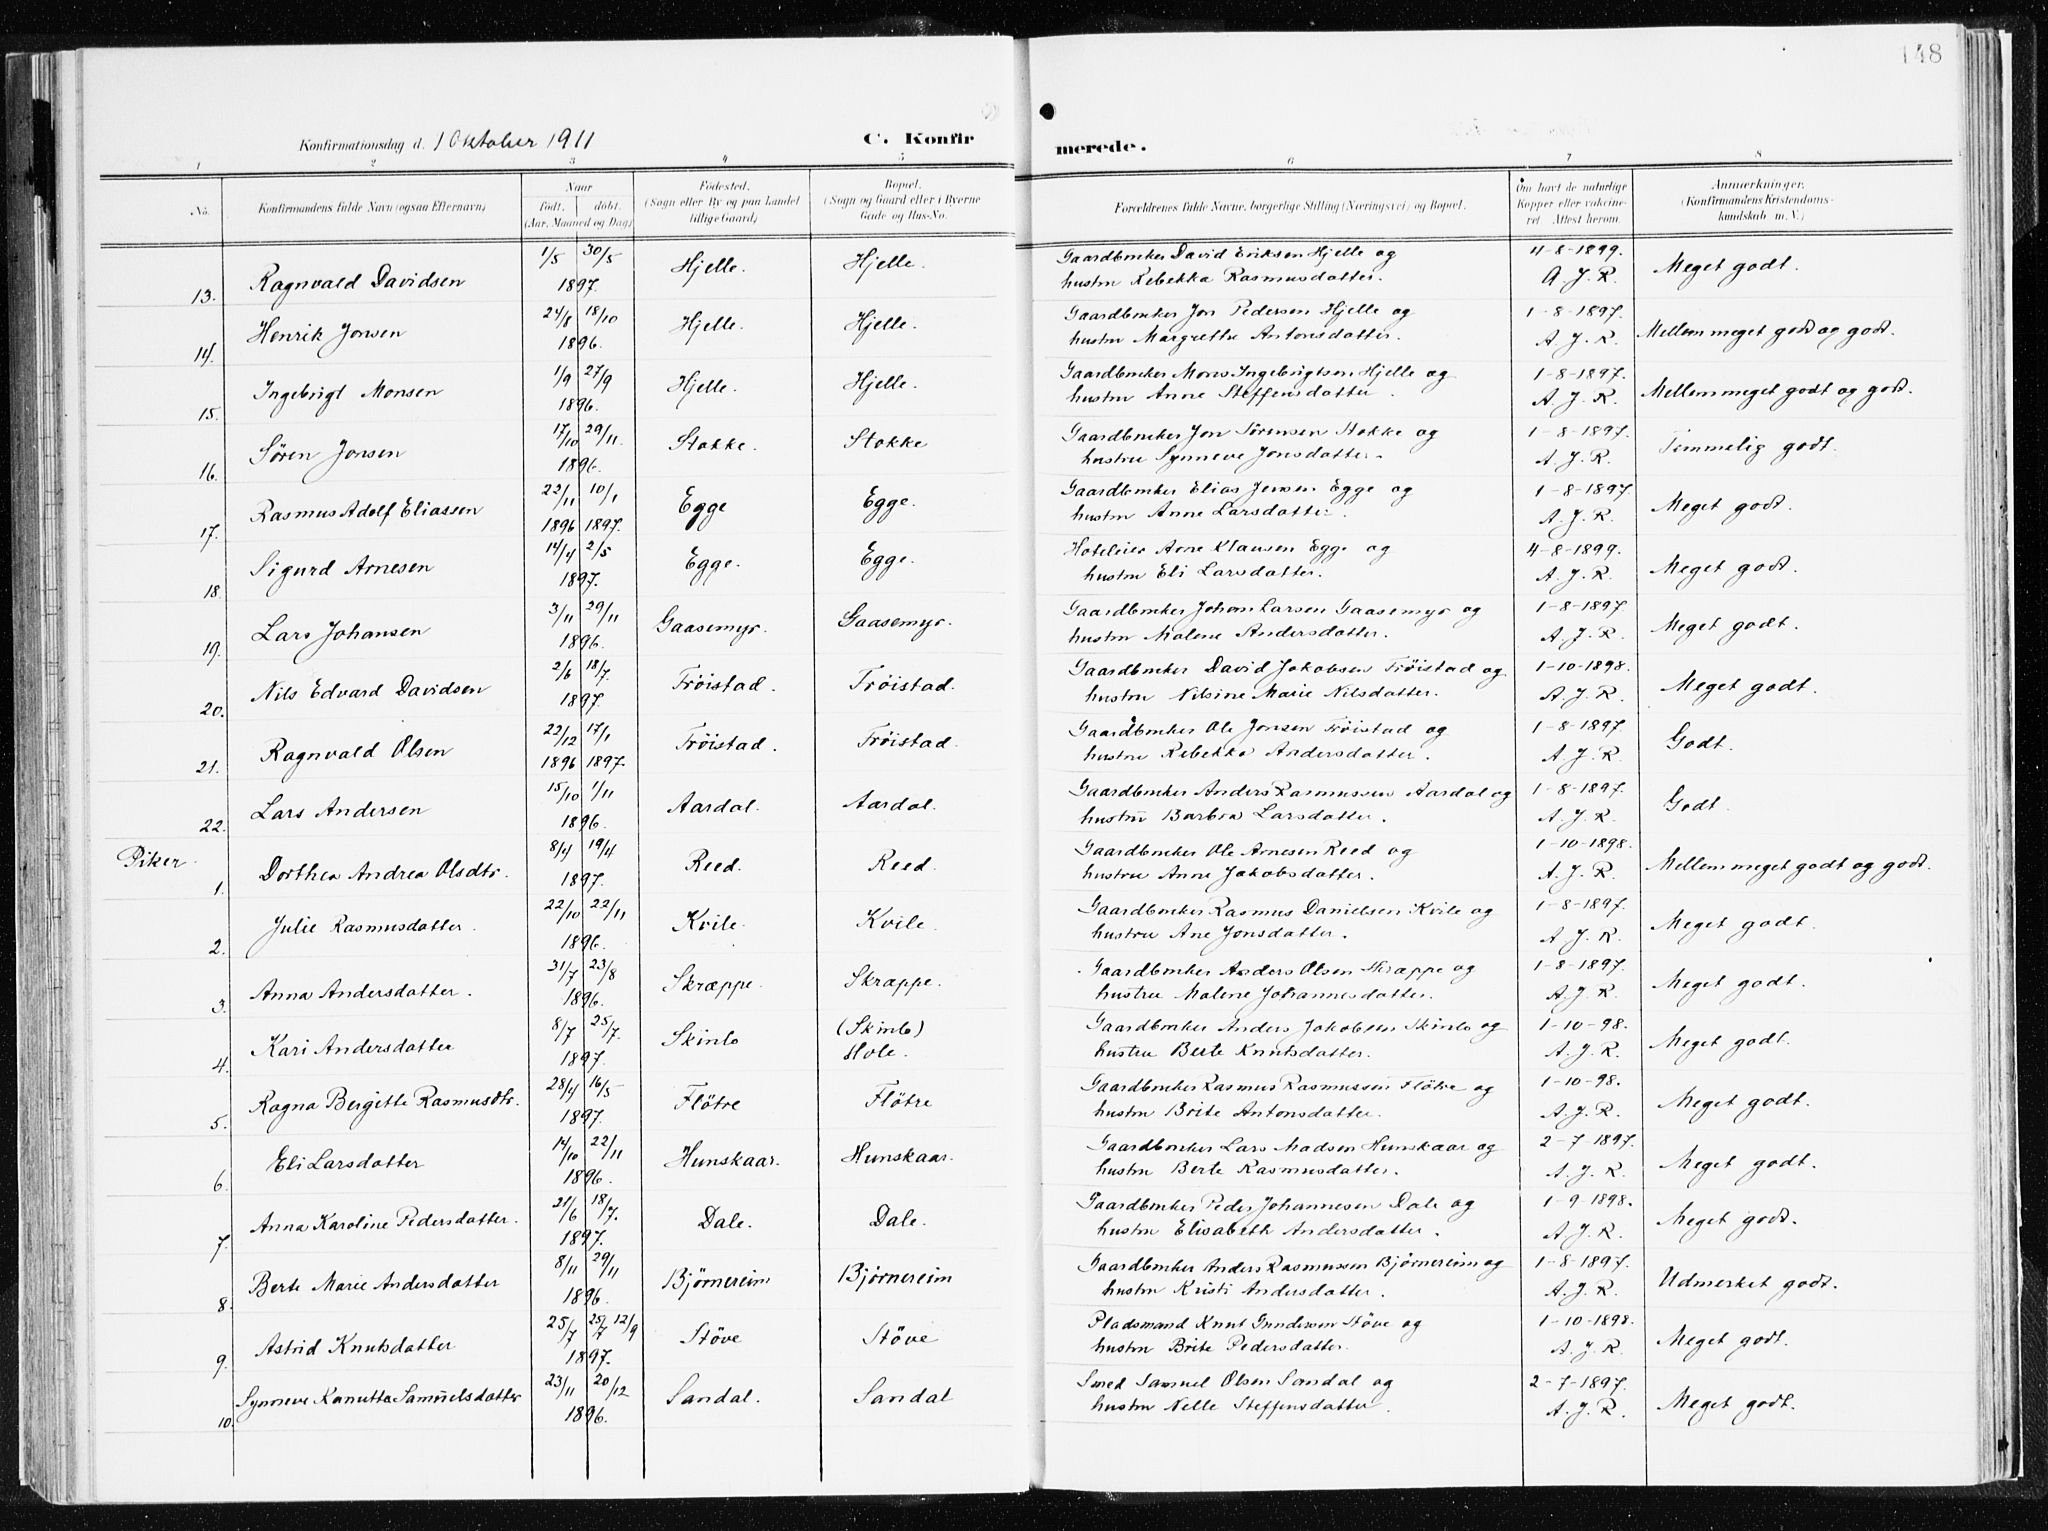 148
Konfirmationsdag d. 1 Oktober 1911 C. Konfirmerede.
1 2 3 4 5 6 7 8
No. Konfirmandens fulde Navn (ogsaa Efternavn) Naar født. døbt. (Aar, Maaned og Dag) Fødested. (Sogn eller By og paa Landet tillige Gaard) Bopæl. (Sogn og Gaard eller i Byerne Gade og Hus-No. Forældrenes fulde Navne, borgerlige Stilling (Næringsvei) og Bopæl. Om havt de naturlige Kopper eller vaccineret. Attest herom. Anmærkninger. (Konfirmandens Kristendomskundskab m. V.)
13. Ragnvald Davidsen 1/5 30/5 1897. Hjelle. Hjelle. Gaardbruker David Eriksen Hjelle og 4-8-1899. Meget godt.
hustru Rebekka Rasmusdatter. A. J. R.
14. Henrik Jonsen 24/8 18/10 1896. Hjelle. Hjelle. Gaardbruker Jon Pedersen Hjelle og 1-8-1897. Mellem meget godt og godt.
hustru Margrethe Antonsdatter. A. J. R.
15. Ingebrigt Monsen 1/9 27/9 1896. Hjelle. Hjelle. Gaardbruker Mons Ingebrigtsen Hjelle og 1-8-1897. Mellem meget godt og godt.
hustru Anne Steffensdatter. A. J. R.
16. Sören Jonsen 17/10 29/11. 1896. Stokke. Stokke Gaardbruker Jon Sörensen Stokke og 1-8-1897. Temmelig godt.
hustru Synneve Jonsdatter. A. J. R.
17. Rasmus Adolf Eliassen 22/11 10/1 1896 1897. Egge Egge. Gaardbruker Elias Jensen Egge og 1-8-1897. Meget godt.
hustru Anne Larsdatter. A. J. R.
18. Sigurd Arnesen 14/4 2/5 1897. Egge. Egge. Hoteleier Arne Klausen Egge og 4-8-1899. Meget godt.
hustru Eli Larsdatter. A. J. R.
19. Lars Johansen 3/11 29/11 1896. Gaasemyr. Gaasemyr. Gaardbruker Johan Larsen Gaasemyr og 1-8-1897. Meget godt.
hustru Malene Andersdatter. A. J. R.
20. Nils Edvard Davidsen 2/6 18/7. 1897. Tröistad. Tröistad. Gaardbruker David Jakobsen Tröistad og 1-10-1898. Meget godt.
hustru Nilsine Marie Nilsdatter. A. J. R.
21. Ragnvald Olsen 22/12 17/1 1896 1897. Tröistad. Tröistad. Gaardbruker Ole Jonsen Tröistad og 1-8-1897. Godt.
hustru Rebekka Andersdatter. A. J. R.
22. Lars Andersen 15/10 1/11 1896. Aardal. Aardal. Gaardbruker Anders Rasmussen Aardal og 1-8-1897. Godt.
hustru Barbra Larsdatter. A. J. R.
Piker.
1. Dorthea Andrea Olsdtr. 8/4 19/4 1897. Reed. Reed. Gaardbruker Ole Arnesen Reed og 1-10-1898. Mellem meget godt og godt.
hustru Anne Jakobsdatter. A. J. R.
2. Julie Rasmusdatter. 22/10 22/11 1896. Kvile. Kvile. Gaardbruker Rasmus Danielsen Kvile og 1-8-1897. Meget godt.
hustru Ane Jonsdatter. A. J. R.
3. Anna Andersdatter. 31/7 23/8 1896. Skræppe. Skræppe. Gaardbruker Anders Olsen Skræppe og 1-8-1897. Meget godt.
hustru Malene Johannesdatter. A. J. R.
4. Kari Andersdatter 8/7 25/7. 1897. Skinlo (Skinlo) Hole. Gaardbruker Anders Jakobsen Skinlo og 1-10-98. Meget godt.
hustru Berte Knutsdatter. A. J. R.
5. Ragna Bergitte Rasmusdtr. 28/4 16/5 1897. Flötre Flötre Gaardbruker Rasmus Rasmussen Flötre og 1-10-98. Meget godt.
hustru Brite Antonsdatter. A. J. R.
6. Eli Larsdatter 14/10 22/11 1896. Hunskaar. Hunskaar. Gaardbruker Lars Madsen Hunskaar og 2-7-1897. Meget godt.
hustru Berte Rasmusdatter. A. J. R.
7. Anna Karoline Pedersdatter. 21/6 18/7. 1897. Dale. Dale. Gaardbruker Peder Johannesen Dale og 1-9-1898. Meget godt.
hustru Elisabeth Andersdatter. A. J. R.
8. Berte Marie Andersdatter 8/11 29/11 1896. Bjørnereim Bjørnereim Gaardbruker Anders Rasmussen Bjørnereim og 1-8-1897. Udmerket godt.
hustru Kristi Andersdatter. A. J. R.
9. Astrid Knutsdatter 25/7 25/7 12/9 1897. Stöve Stöve Pladsmand Knut Gundersen Stöve og 1-10-1898. Meget godt.
hustru Brite Pedersdatter. A. J. R.
10. Synneve Kanutta Samuelsdatter 23/11 20/12 1896. Sandal. Sandal Smed Samuel Olsen Sandal og 2-7-1897. Meget godt.
hustru Nelle Steffensdatter. A. J. R.